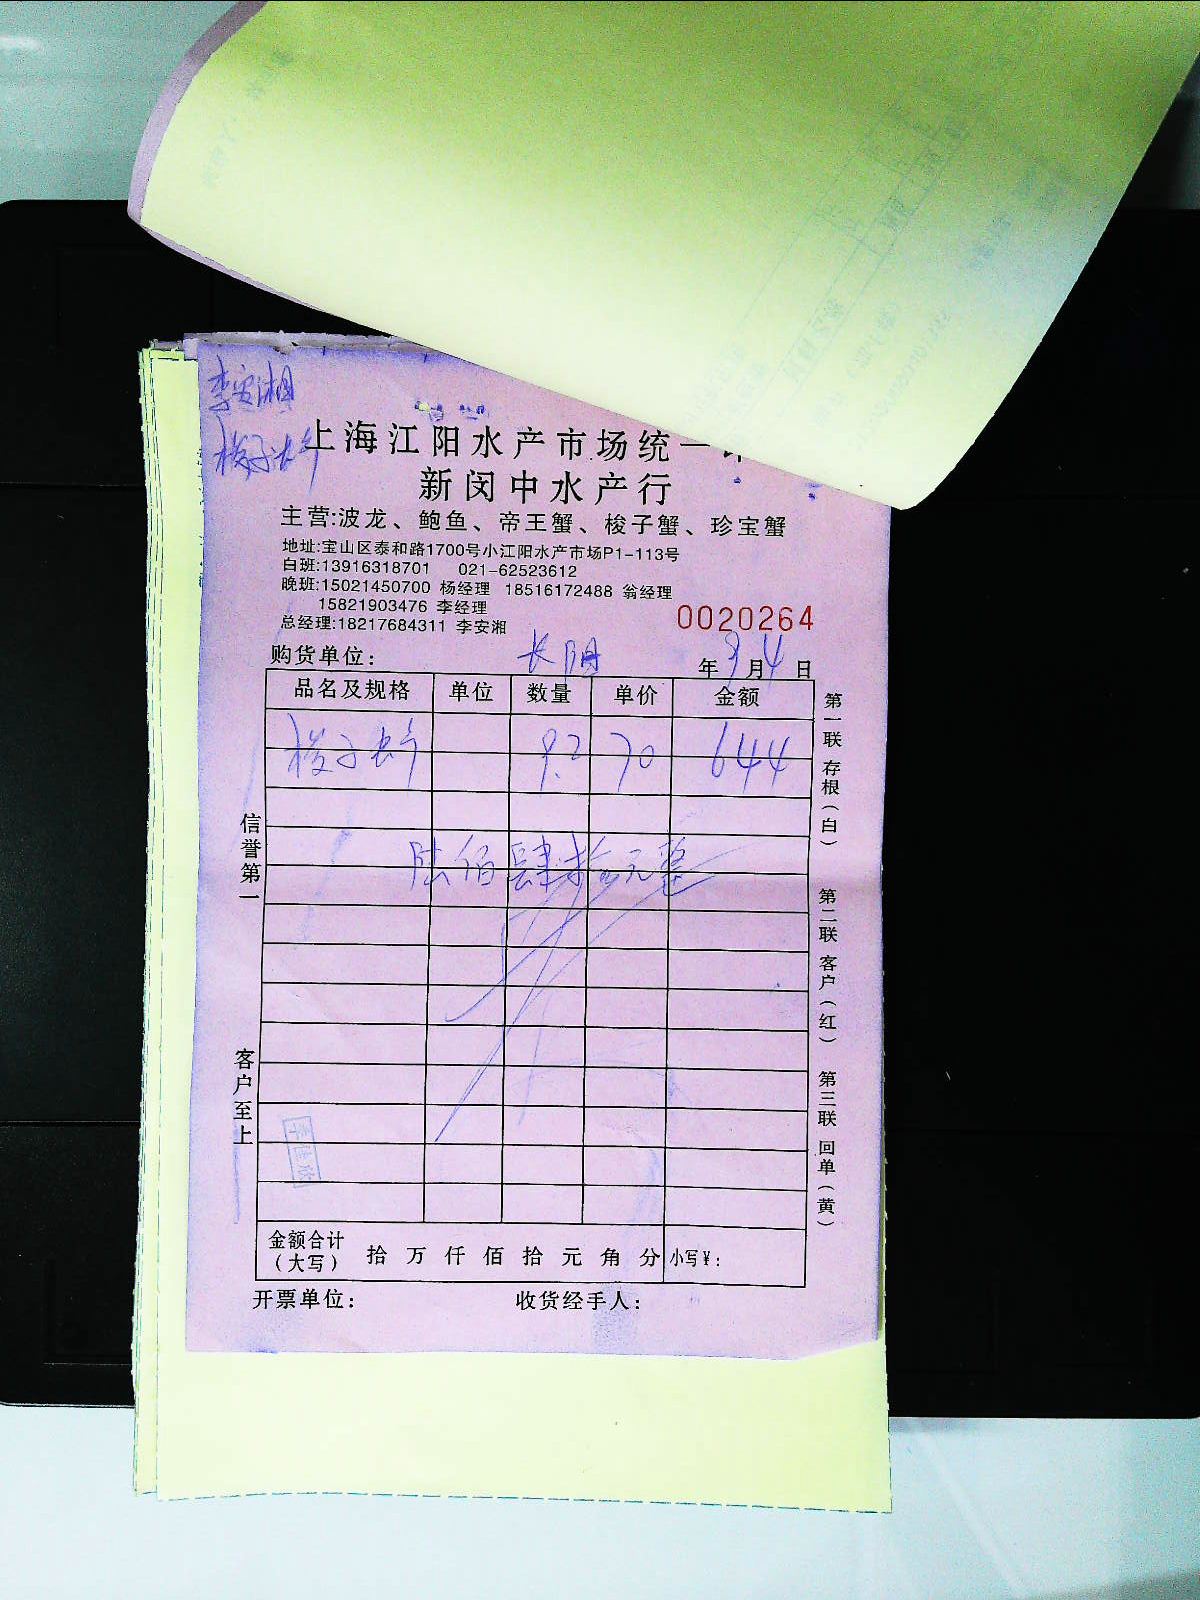 李安湘
梭子
上海江阳水产市场统一
新闵中水产行
主营:波龙、鲍鱼、帝王蟹、梭子蟹、珍宝蟹
地址:宝山区泰和路1700号小江阳水产市场P1-113号
白班:13916318701 021-62523612
晚班:15021450700 杨经理 18516172488 翁经理
15821903476 李经理
总经理:18217684311 李安湘
0020264
购货单位: 长阴 年 3月4日
品名及规格 单位 数量 单价 金额
梭子 9.2 70 644
陆佰肆拾 元整
金额合计(大写) 拾 万 仟 佰 拾 元 角 分 小写¥:
开票单位: 收货经手人:
信誉第一
客户至上
第一联 存根(白)
第二联 客户(红)
第三联 回单(黄)